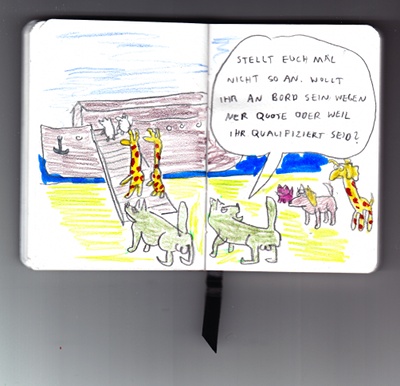 STELLT EUCH MAL
NICHT SO AN. WOLLT
IHR AN BORD SEIN WEGEN
NER QUOTE ODER WEIL
IHR QUALIFIZIERT SEID?